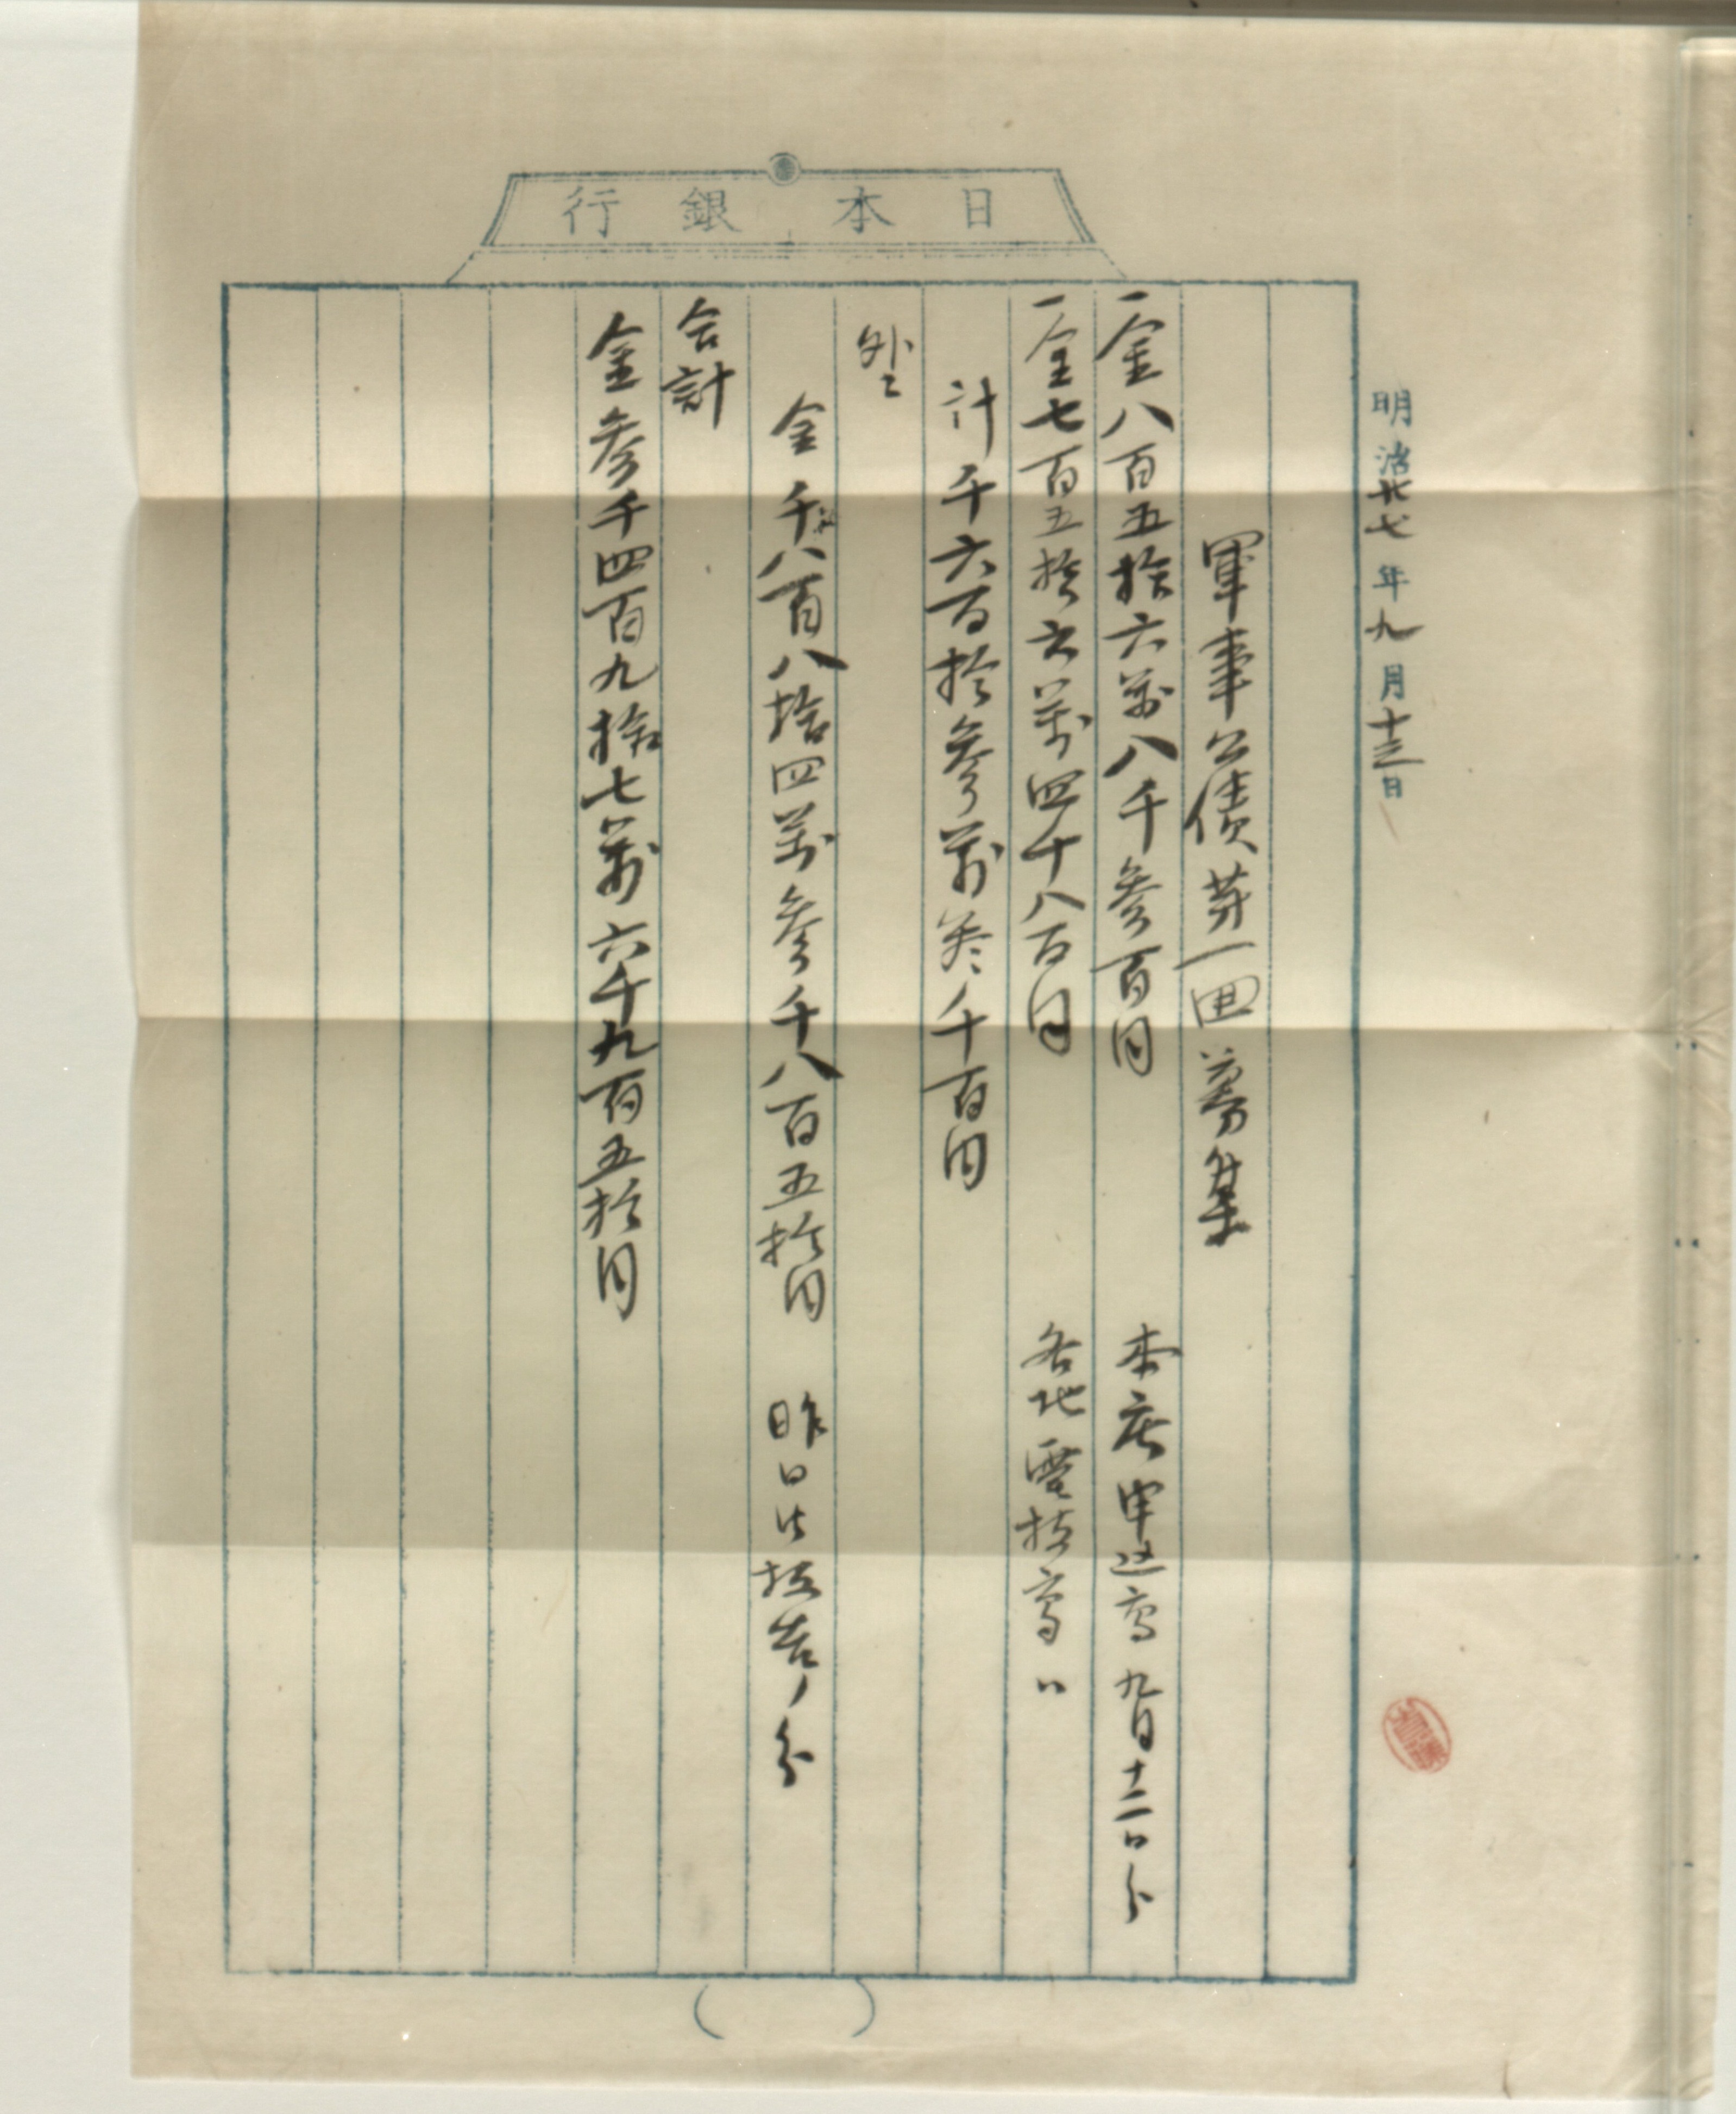 日本銀行
明治廿七年九月十三日
軍事公債第一回募集
一金八百五拾六萬八千参百円 本店申込高 九月十二日分
一金七百五拾六萬四千八百円 各地電報高 〃
計千六百拾参萬参千百円
外ニ
金千八百八拾四萬参千八百五拾円 昨日迄報告ノ分
合計
金参千四百九拾七萬六千九百五拾円